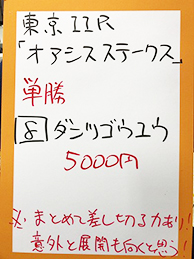 東京11R
「オアシスステークス」
単勝
8 ダンツゴウユウ
5000円
※まとめて差し切る力あり!
意外と展開も向くと思う!